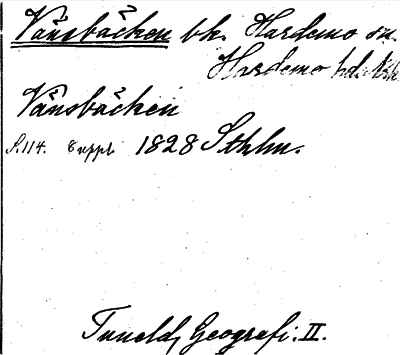 Vänsbäcken bk. Hardemo sn.
Hardemo hd.
Vänsbäcken
S. 114. Suppl. 1828 Sthlm.
Tuneld, Geografi. II.